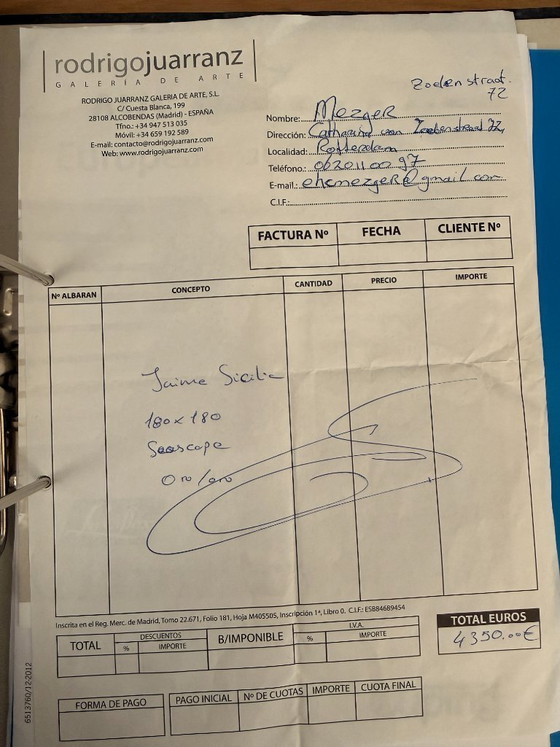 rodrigojuarranz
GALERIA DE ARTE
RODRIGO JUARRANZ GALERIA DE ARTE, S.L.
C/ Cuesta Blanca, 199
28108 ALCOBENDAS (Madrid) - ESPAÑA
Tfno.: +34 947 513 035
Móvil: +34 659 192 589
E-mail: contacto@rodrigojuarranz.com
Web: www.rodrigojuarranz.com
72
Nombre: Mezger
Dirección: Catharina van Zoelenstraat 72
Localidad: Rotterdam
Teléfono: 0620110097
E-mail: ehcmezger@gmail.com
C.I.F.:
FACTURA Nº FECHA CLIENTE Nº
Nº ALBARAN CONCEPTO CANTIDAD PRECIO IMPORTE
Jaime Sicilia
180x180
Seascape
Oro/oro
Inscrita en el Reg. Merc. de Madrid, Tomo 22.671, Folio 181, Hoja M405505, Inscripción 1ª, Libro 0. C.I.F.: ES884689454
TOTAL DESCUENTOS % IMPORTE B/IMPONIBLE I.V.A. % IMPORTE
TOTAL EUROS
4350.00€
FORMA DE PAGO PAGO INICIAL Nº DE CUOTAS IMPORTE CUOTA FINAL
6513760/12-2012